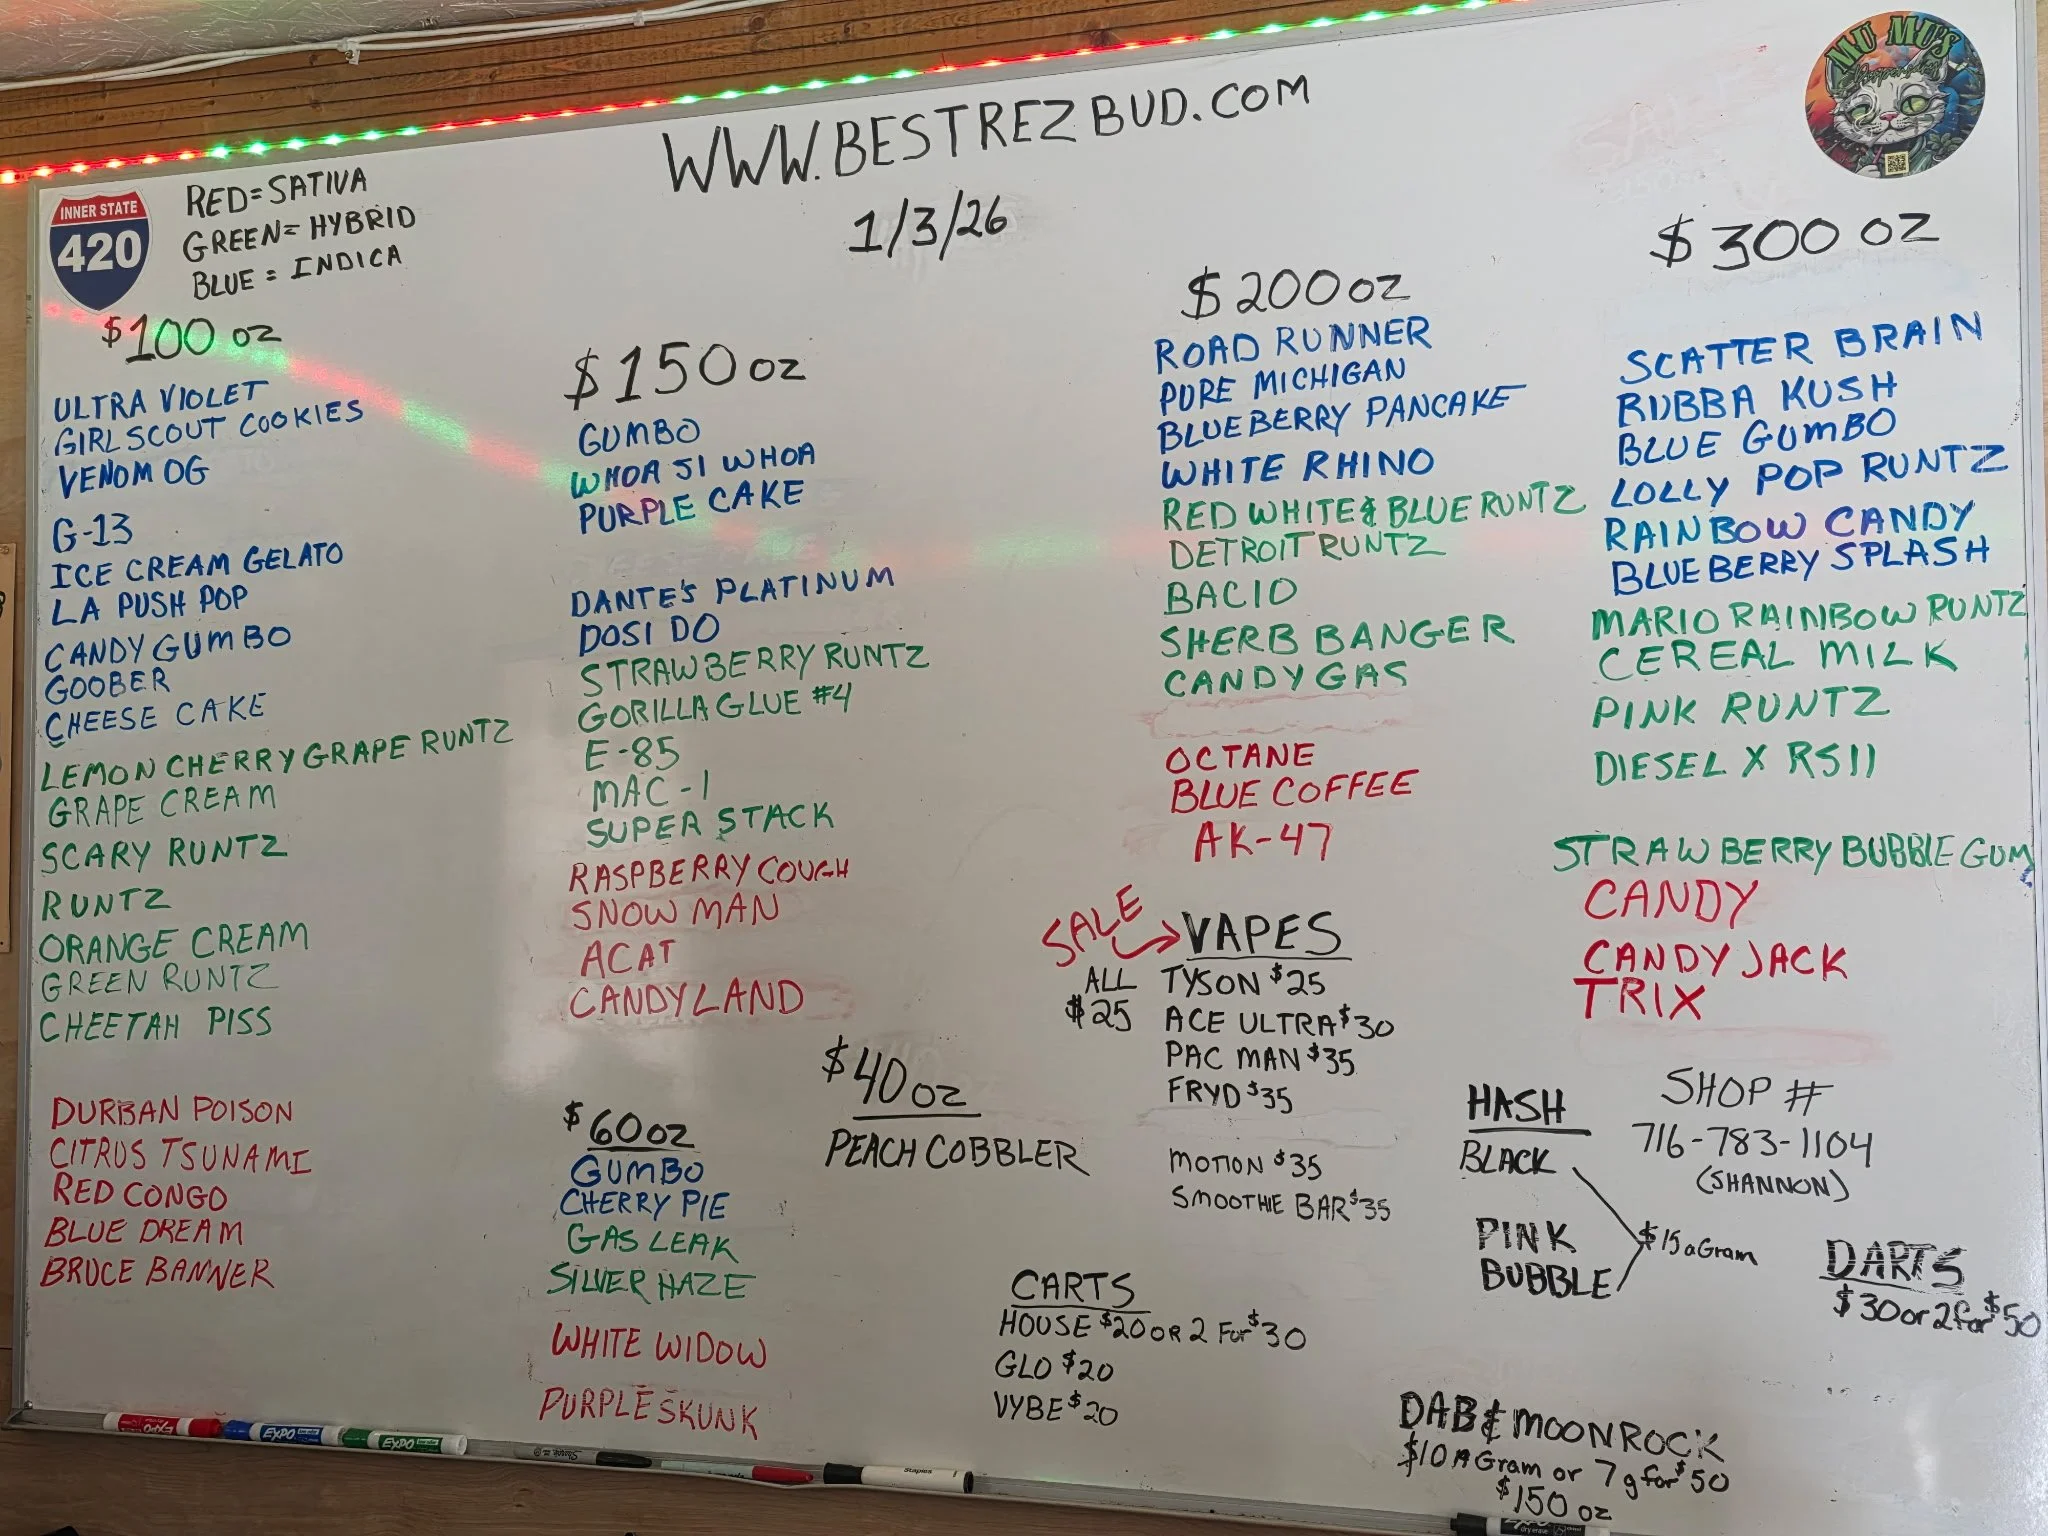 WWW.BESTREZBUD.COM
1/3/26
MU MU'S
Dispensary
INNER STATE
420
RED=SATIVA
GREEN=HYBRID
BLUE=INDICA
$100 OZ
ULTRA VIOLET
GIRL SCOUT COOKIES
VENOM OG
G-13
ICE CREAM GELATO
LA PUSH POP
CANDY GUMBO
GOOBER
CHEESE CAKE
LEMON CHERRY GRAPE RUNTZ
GRAPE CREAM
SCARY RUNTZ
RUNTZ
ORANGE CREAM
GREEN RUNTZ
CHEETAH PISS
DURBAN POISON
CITRUS TSUNAMI
RED CONGO
BLUE DREAM
BRUCE BANNER
$150 OZ
GUMBO
WHOA SI WHOA
PURPLE CAKE
DANTE'S PLATINUM
DOSI DO
STRAWBERRY RUNTZ
GORILLA GLUE #4
E-85
MAC-1
SUPER STACK
RASPBERRY COUGH
SNOW MAN
ACAT
CANDYLAND
$60 OZ
GUMBO
CHERRY PIE
GAS LEAK
SILVER HAZE
WHITE WIDOW
PURPLE SKUNK
$40 OZ
PEACH COBBLER
$200 OZ
ROAD RUNNER
PURE MICHIGAN
BLUEBERRY PANCAKE
WHITE RHINO
RED WHITE & BLUE RUNTZ
DETROIT RUNTZ
BACIO
SHERB BANGER
CANDY GAS
OCTANE
BLUE COFFEE
AK-47
SALE
ALL
$25
VAPES
TYSON $25
ACE ULTRA $30
PAC MAN $35
FRYD $35
MOTION $35
SMOOTHIE BAR $35
CARTS
HOUSE $20 OR 2 For $30
GLO $20
VYBE $20
$300 OZ
SCATTER BRAIN
RUBBA KUSH
BLUE GUMBO
LOLLY POP RUNTZ
RAINBOW CANDY
BLUEBERRY SPLASH
MARIO RAINBOW RUNTZ
CEREAL MILK
PINK RUNTZ
DIESEL X RS11
STRAWBERRY BUBBLE GUM
CANDY
CANDY JACK
TRIX
HASH
BLACK
PINK
BUBBLE
$15 a Gram
SHOP #
716-783-1104
(SHANNON)
DARTS
$30 or 2 for $50
DAB & MOONROCK
$10 A Gram or 7g for $50
$150 OZ
EXPO
EXPO
EXPO
Staples
EXPO
dry erase